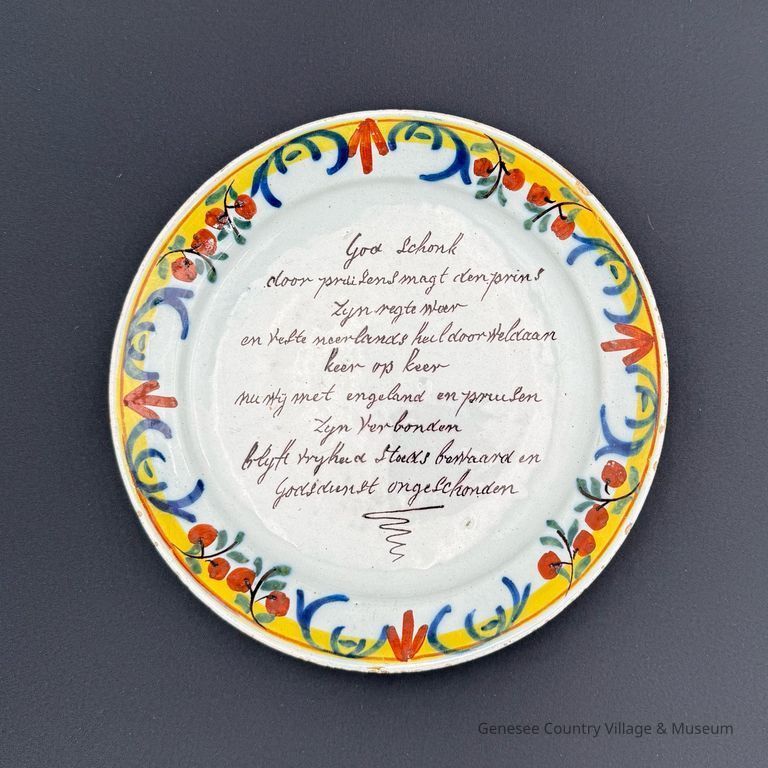 God Schonk
door pruisens magt den prins
Zyn regte weer
en Veste neerlands heil door Weldaan
keer op keer
nu Wij met engeland en pruisen
Zyn Verbonden
blyft vryheid Steeds beWaard en
Godsdinst ongeSchonden
Genesee Country Village & Museum